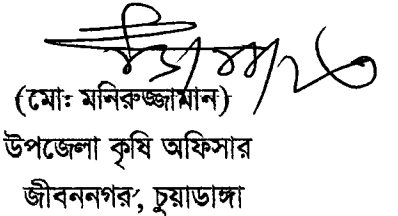 (মো: মনিরুজ্জামান)
উপজেলা কৃষি অফিসার
জীবননগর, চুয়াডাঙ্গা